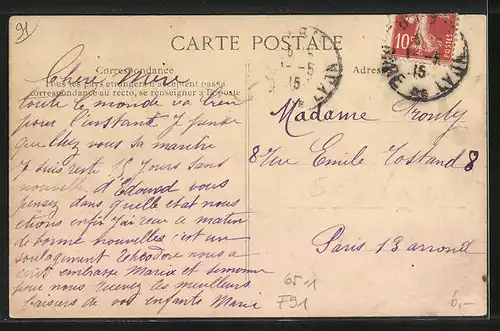 91
CARTE POSTALE
Correspondance
Tous les pays étrangers n'acceptent pas la
correspondance au recto, se renseigner à la poste
Adres
10
POSTES
LYON
15
Chère Mère
toute le monde va bien
pour l'instant J pense
que chez vous sa marche
J suis resté 15 Jours sans
nouvelle d'Edouard vous
pensez dans quelle etat nous
etions enfin J'ai reçu ce matin
de bonne nouvelles c'est un
soulagement Théodore nous a
ecrit embrasse Maria et
pour nous recevez les meilleurs
baisers de vos enfants Marie
Madame
8 Rue Emile Rostand 8
Paris 13 arrond
65-1
791
6,-